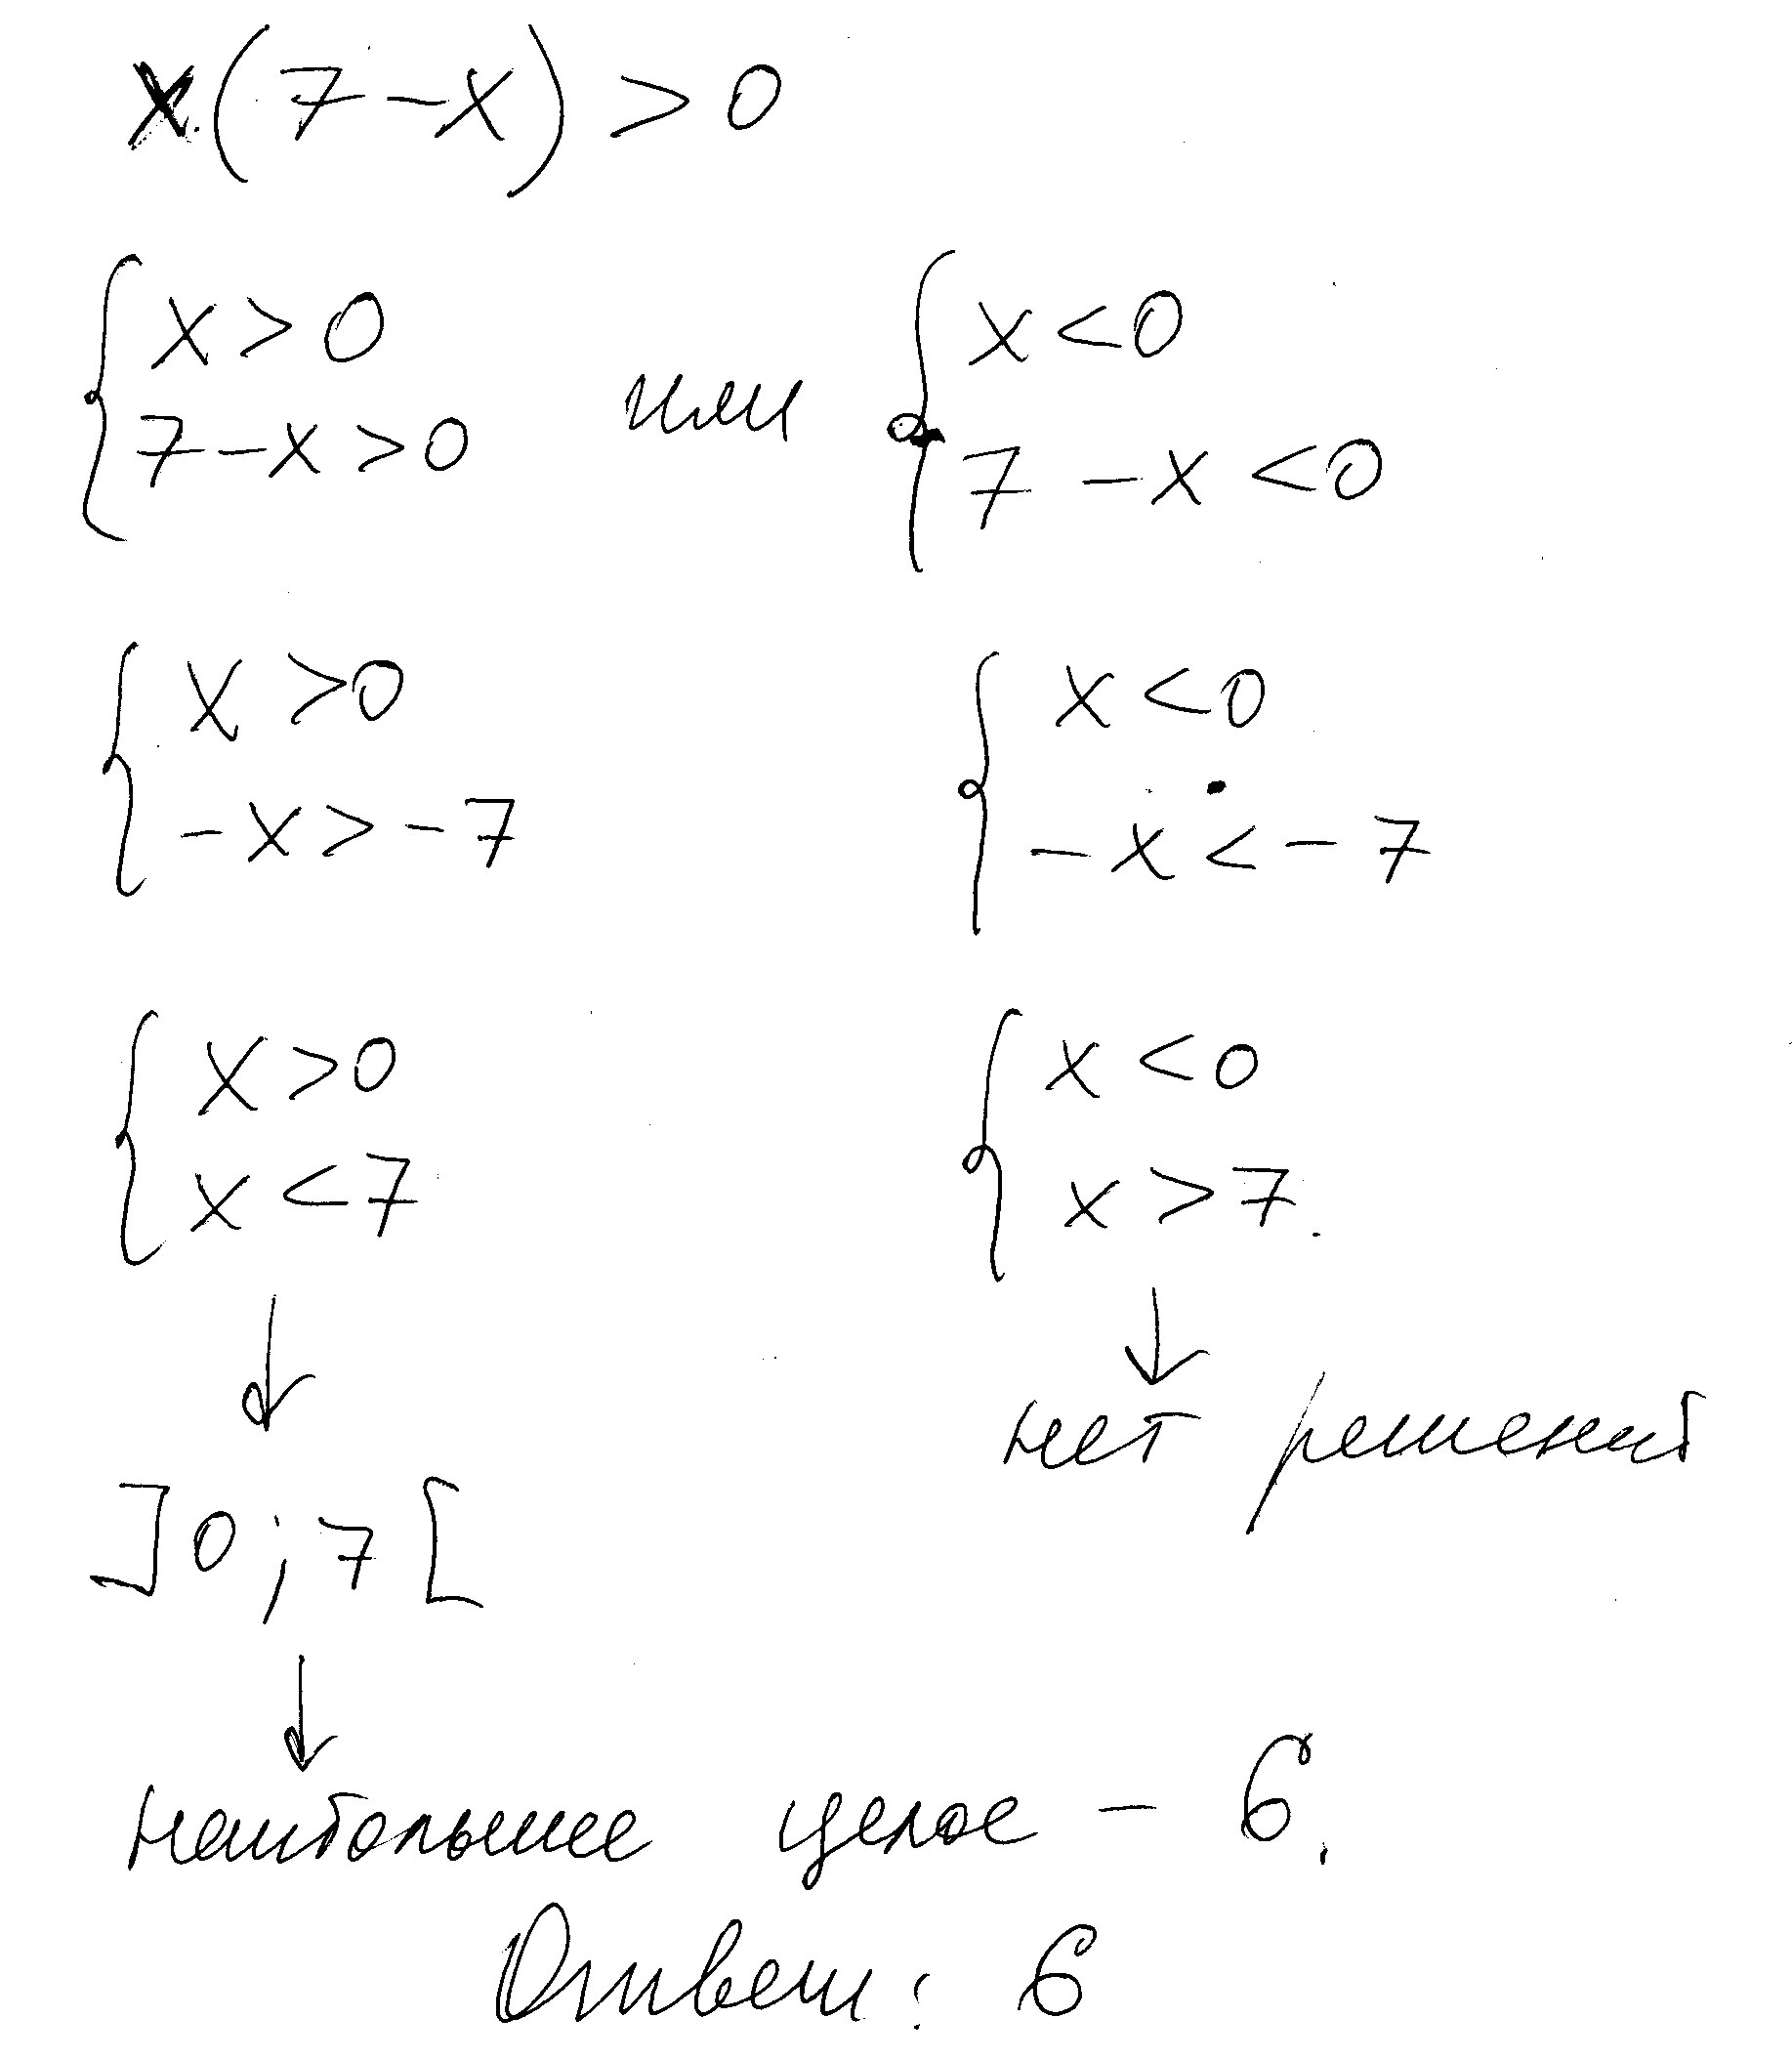 x(7-x)>0
{x>0 или {x<0
7-x>0 7-x<0
{x>0 {x<0
-x>-7 -x<-7
{x>0 {x<0
x<7 x>7.
↓ ↓
нет решений
]0;7[
↓
наибольшее целое - 6.
Ответ: 6